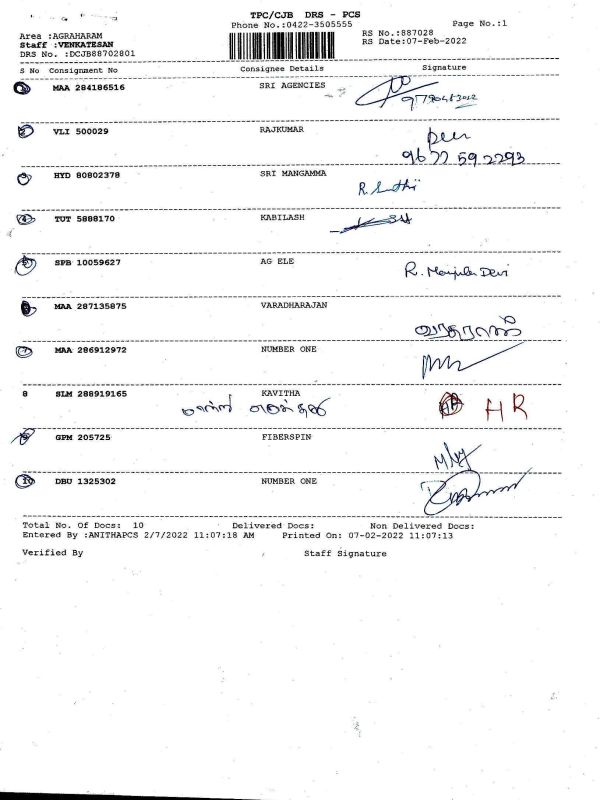 TPC/CJB DRS - PCS
Phone No.:0422-3505555 Page No.:1
Area :AGRAHARAM RS No.:887028
Staff :VENKATESAN RS Date:07-Feb-2022
DRS No. :DCJB88702801
S No Consignment No Consignee Details Signature
MAA 284186516 SRI AGENCIES
2 VLI 500029 RAJKUMAR
96 77 59 2293
3 HYD 80802378 SRI MANGAMMA
4 TUT 5888170 KABILASH
5 SPB 10059627 AG ELE
R. Manjula Devi
MAA 287135875 VARADHARAJAN
வரதராஜ்
7 MAA 286912972 NUMBER ONE
8 SLM 288919165 KAVITHA
HR
9 GPM 205725 FIBERSPIN
10 DBU 1325302 NUMBER ONE
Total No. Of Docs: 10 Delivered Docs: Non Delivered Docs:
Entered By :ANITHAPCS 2/7/2022 11:07:18 AM Printed On: 07-02-2022 11:07:13
Verified By Staff Signature